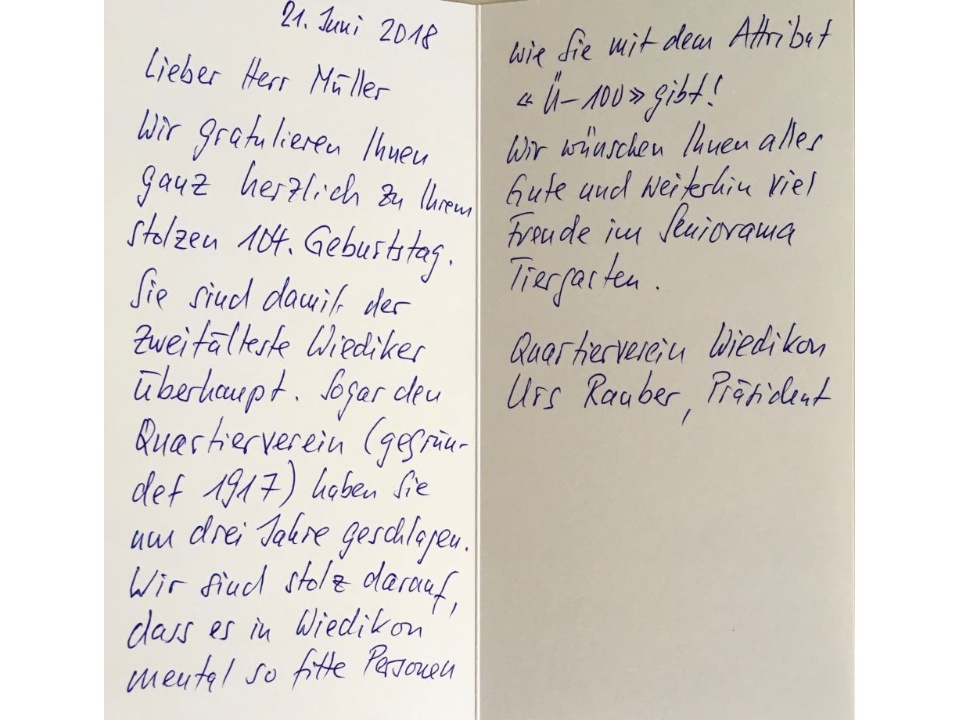 21. Juni 2018
Lieber Herr Müller
Wir gratulieren Ihnen
ganz herzlich zu Ihrem
stolzen 104. Geburtstag.
Sie sind damit der
zweitälteste Wiediker
überhaupt. Sogar den
Quartierverein (gegrün-
det 1917) haben Sie
um drei Jahre geschlagen.
Wir sind stolz darauf,
dass es in Wiedikon
mental so fitte Personen
wie Sie mit dem Attribut
«Ü-100» gibt!
Wir wünschen Ihnen alles
Gute und weiterhin viel
Freude im Seniorama
Tiergarten.
Quartierverein Wiedikon
Urs Rauber, Präsident